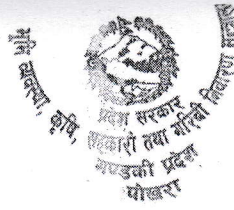 भूमि व्यवस्था, कृषि,
सहकारी तथा गरिबी निवारण
प्रदेश सरकार
गण्डकी प्रदेश
पोखरा